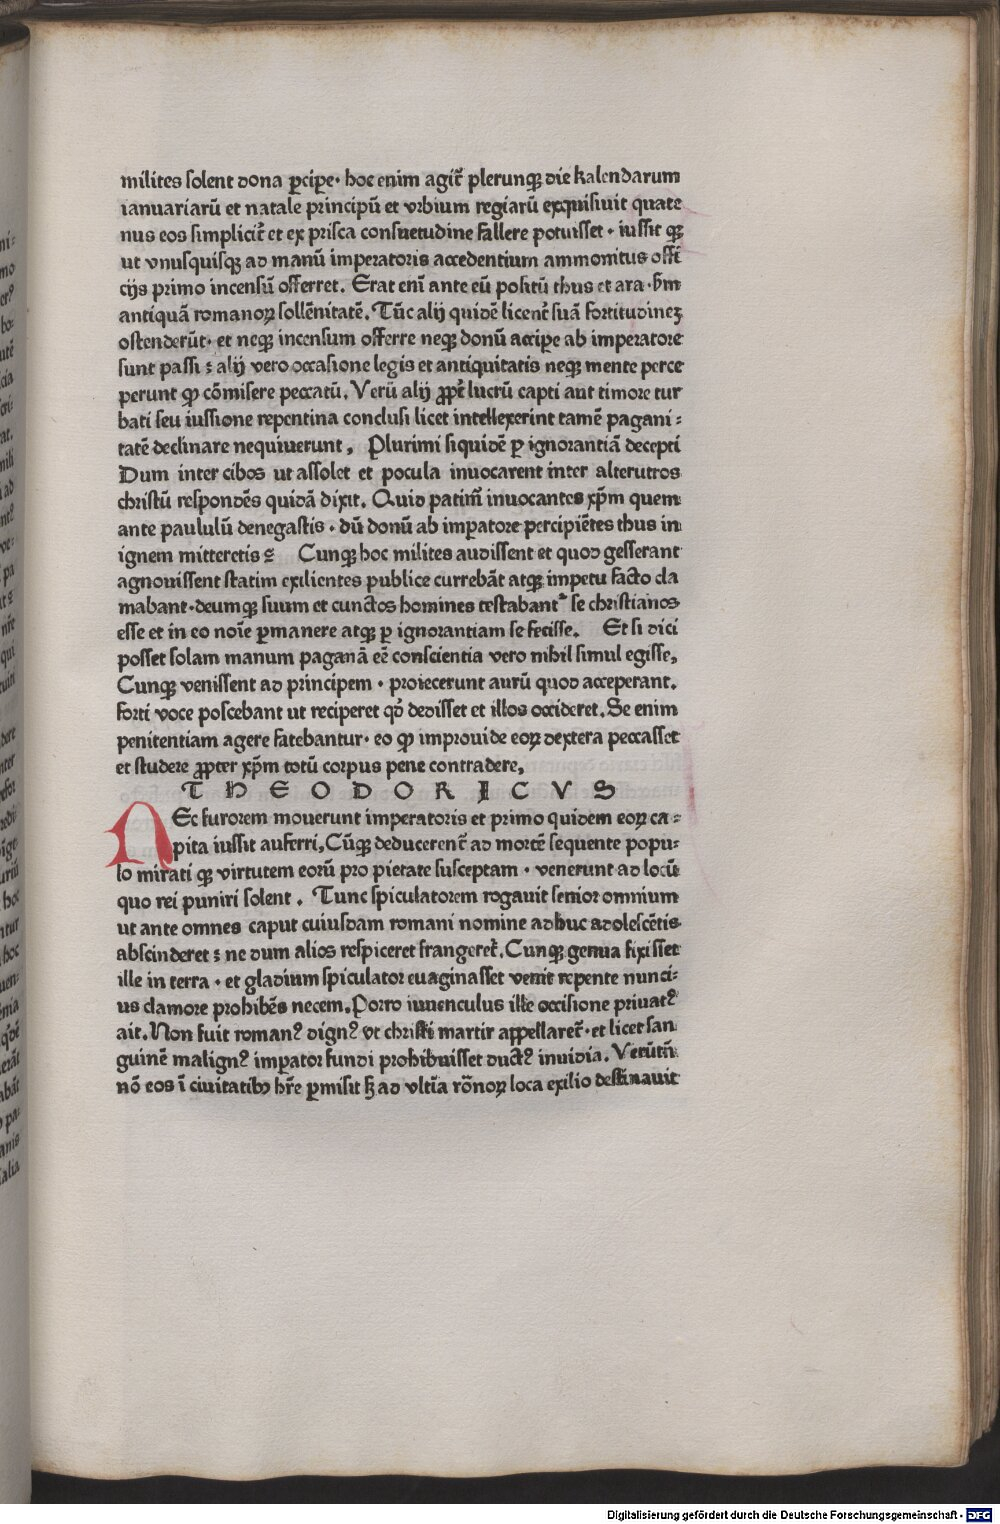 milites solent dona ꝑciꝑe· hoc enim agit᷑ plerunqꝫ die kalendarum
ianuariarū et natale principū et vrbium regiarū exquisiuit quate
nus eos simplicit᷑ et ex prisca consuetudine fallere potuisset · iussit qꝫ
ut vnusquisqꝫ ad manū imperatoris accedentium ammonitus offi
cijs primo incensū offerret. Erat eni᷑ ante eū positū thus et ara · ẜm
antiquā romanoꝝ sollēnitatē. Tūc alij quidē licent᷑ suā fortitudinez
ostenderūt· et neqꝫ incensum offerre neqꝫ donū acciꝑe ab imperatore
sunt passi : alij vero occasione legis et antiquitatis neqꝫ mente perce
perunt ꝙ cōmisere peccatū. Verū alij ꝓpt᷑ lucrū capti aut timore tur
bati seu iussione repentina conclusi licet intellexerint tamē pagani :
tatē declinare nequiuerunt , Plurimi siquidē ꝑ ignorantiā decepti
Dum inter cibos ut assolet et pocula inuocarent inter alterutros
christū respondēs quidā dixit. Quid patimī inuocantes xp̄m quem
ante paululū denegastis · dū donū ab imꝑatore percipiētes thus in
ignem mitteretis ? Cunqꝫ hoc milites audissent et quod gesserant
agnouissent statim exilientes publice currebāt atqꝫ impetu facto cla
mabant·deumqꝫ suum et cunctos homines testabant᷑ se christianos
esse et in eo noīe ꝑmanere atqꝫ ꝑ ignorantiam se fecisse. Et si dici
posset solam manum paganā eē conscientia vero nihil simul egisse,
Cunqꝫ venissent ad principem · proiecerunt aurū quod acceperant.
forti voce poscebant ut reciperet qđ dedisset et illos occideret. Se enim
penitentiam agere fatebantur· eo ꝙ improuide eoꝝ dextera peccasset
et studere ꝓpter xp̄m totū corpus pene contradere,
THEODORICVS
Ec furorem mouerunt imperatoris et primo quidem eoꝝ ca :
pita iussit auferri, Cūqꝫ deducerent᷑ ad mortē sequente popu:
lo mirati qꝫ virtutem eorū pro pietate susceptam · venerunt ad locū
quo rei puniri solent . Tunc spiculatorem rogauit senior omnium
ut ante omnes caput cuiusdam romani nomine adhuc adolescētis
abscinderet : ne dum alios respiceret frangeret᷑. Cunqꝫ genua fixisset
ille in terra · et gladium spiculator euaginasset venit repente nunci:
us clamore prohibēs necem. Porro iuuenculus ille occisione priuatꝰ
ait. Non fuit romanꝰ dignꝰ vt christi martir appellaret᷑ · et licet san
guinē malignꝰ imꝑator fundi prohibuisset ductꝰ inuidia. Verūtn̄
nō eos ī ciuitatibꝫ hr̄e ꝑmisit sꝫ ad vltīa rōnoꝝ loca exilio destinauit
Digitalisierung gefördert durch die Deutsche Forschungsgemeinschaft · DFG